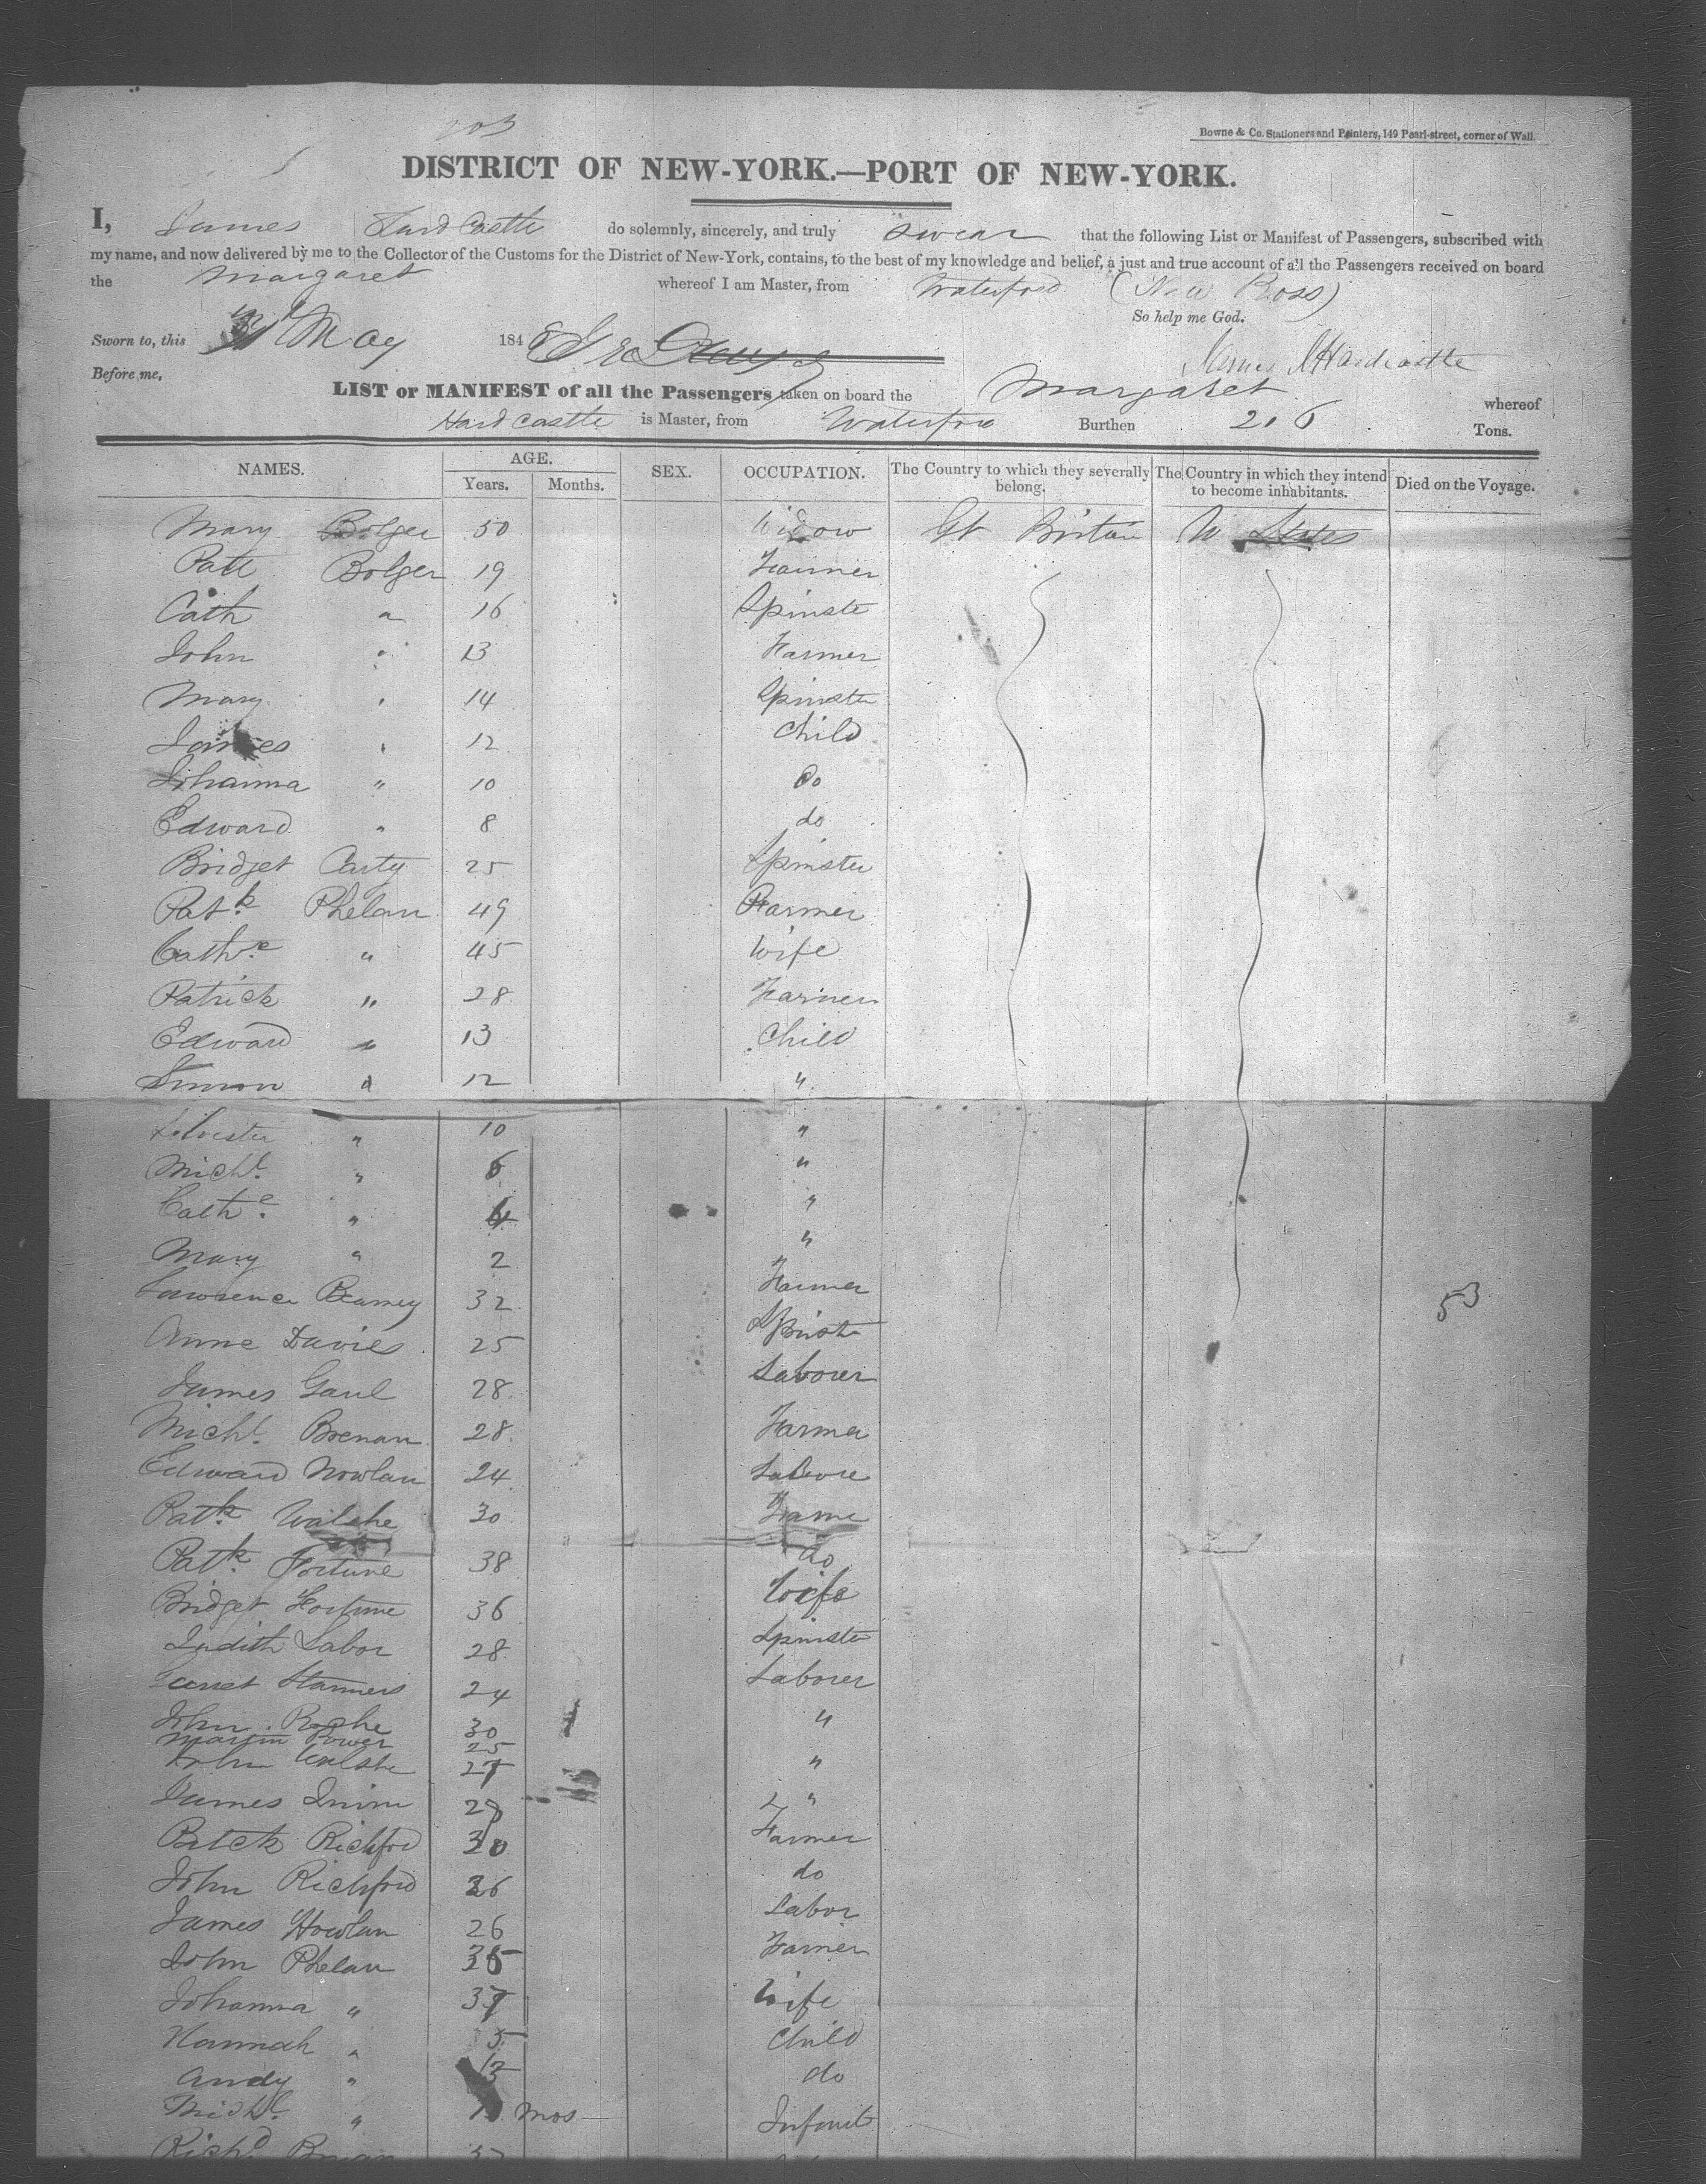 203
Bowne & Co. Stationers and Printers, 149 Pearl-street, corner of Wall.
DISTRICT OF NEW-YORK.—PORT OF NEW-YORK.
I, James Hardcastle do solemnly, sincerely, and truly swear that the following List or Manifest of Passengers, subscribed with
my name, and now delivered by me to the Collector of the Customs for the District of New-York, contains, to the best of my knowledge and belief, a just and true account of all the Passengers received on board
the Margaret whereof I am Master, from Waterford (New Ross)
So help me God.
Sworn to, this May 1848
James Hardcastle
Before me,
LIST or MANIFEST of all the Passengers taken on board the Margaret whereof
Hardcastle is Master, from Waterford Burthen 216 Tons.
NAMES. AGE. Years. Months. SEX. OCCUPATION. The Country to which they severally belong. The Country in which they intend to become inhabitants. Died on the Voyage.
Mary Bolger 50 Widow Gt Britain U States
Patt Bolger 19 Farmer
Cath " 16 Spinste
John " 13 Farmer
Mary " 14 Spinster
James " 12 Child
Johanna " 10 Do
Edward " 8 do
Bridget Carty 25 Spinster
Patk Phelan 49 Farmer
Cathe " 45 Wife
Patrick " 28 Farmer
Edward " 13 Child
Simon " 12 "
Silvester " 10 "
Michl " 6 "
Cathe " 4 "
Mary " 2 "
Lawrence 32 Farmer
53
Anne Davies 25
James Gaul 28 Laborer
Michl Brenan 28 Farmer
Edward Nowlan 24
Patk Walshe 30 Farme
Patk Fortune 38 do
Bridget Fortune 36 Wife
Judith Labor 28 Spinster
24 Laborer
John Roche 30 "
Martin Power 25
John Walshe 27 "
James "
Patck Richford 30 Farmer
John Richford 26 do
James Howlan 26 Labor
John Phelan Farmer
Johanna " 37 Wife
Hannah " 5 Child
Andy " do
Michl " mos Infant
Richd